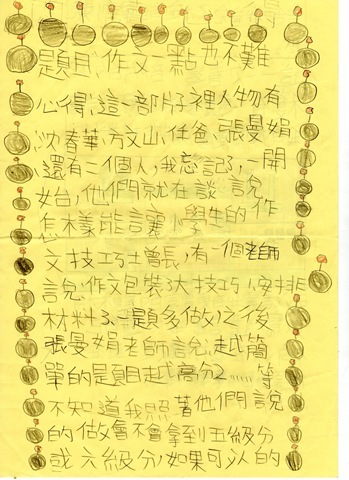 題目：作文一點也不難
心得：這一部片子裡人物有
沈春華、方文山、任爸、張曼娟
還有二個人，我忘記了，一開
始，他們就在談 說
怎樣能讓小學生的作
文技巧土曾長，有一個老師
說：作文包裝3大技巧1.安排
材料3.一題多做，之後
張曼娟老師說：越簡
單的題目越高分2......等
不知道我照著他們說
的做會不會拿到五級分
或六級分，如果可以的